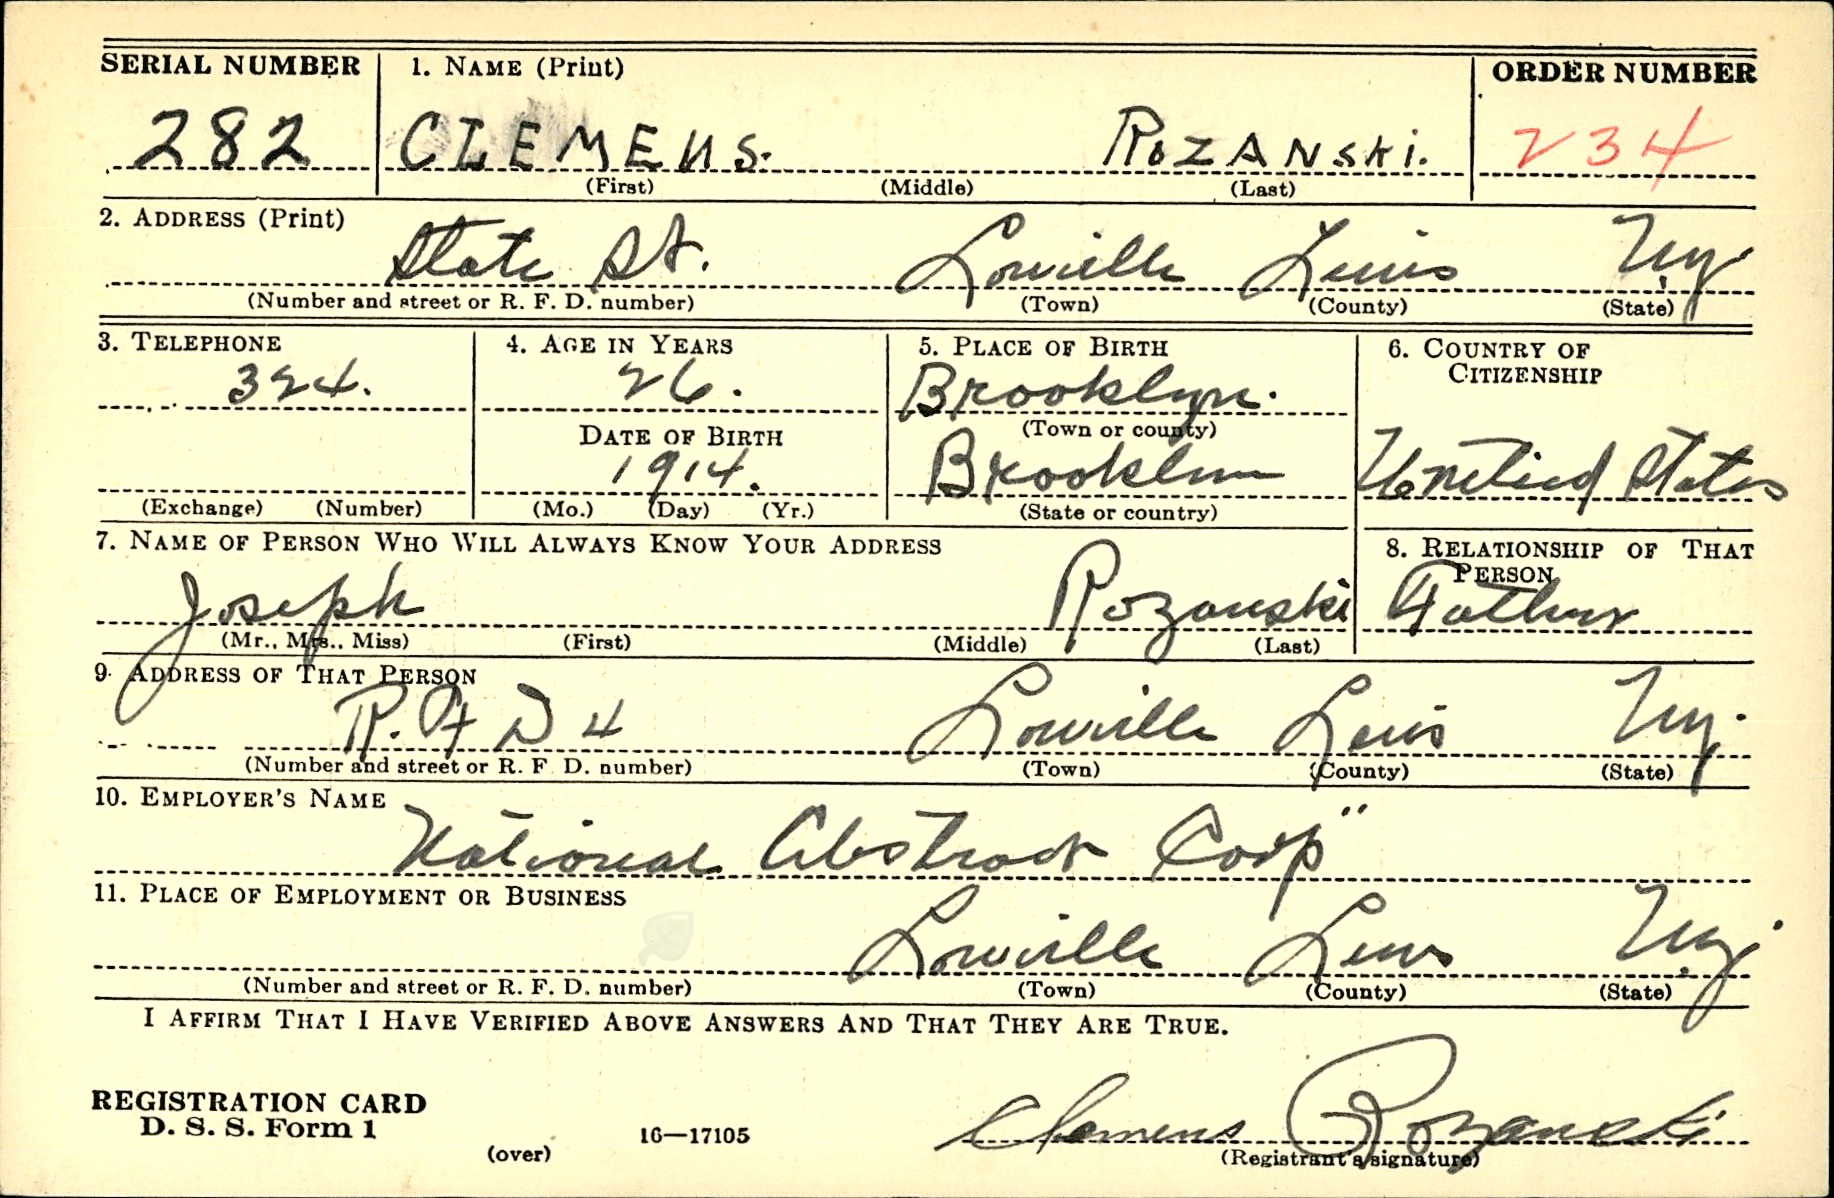 SERIAL NUMBER 1. NAME (Print) ORDER NUMBER
282 CLEMENS. ROZANSKI. 234
(First) (Middle) (Last)
2. ADDRESS (Print)
State St. Lowville Lewis N.y.
(Number and street or R. F. D. number) (Town) (County) (State)
3. TELEPHONE 4. AGE IN YEARS 5. PLACE OF BIRTH 6. COUNTRY OF CITIZENSHIP
324. 26. Brooklyn.
(Town or county)
DATE OF BIRTH
1914. Brooklyn United States
(Exchange) (Number) (Mo.) (Day) (Yr.) (State or country)
7. NAME OF PERSON WHO WILL ALWAYS KNOW YOUR ADDRESS 8. RELATIONSHIP OF THAT PERSON
Joseph Rozanski Father
(Mr., Mrs., Miss) (First) (Middle) (Last)
9. ADDRESS OF THAT PERSON
R. F D 4 Lowville Lewis N.y.
(Number and street or R. F. D. number) (Town) (County) (State)
10. EMPLOYER'S NAME
National Abstract Corp"
11. PLACE OF EMPLOYMENT OR BUSINESS
Lowville Lewis N.y.
(Number and street or R. F. D. number) (Town) (County) (State)
I AFFIRM THAT I HAVE VERIFIED ABOVE ANSWERS AND THAT THEY ARE TRUE.
REGISTRATION CARD
D. S. S. Form 1 16—17105 Clemens Rozanski
(over) (Registrant's signature)